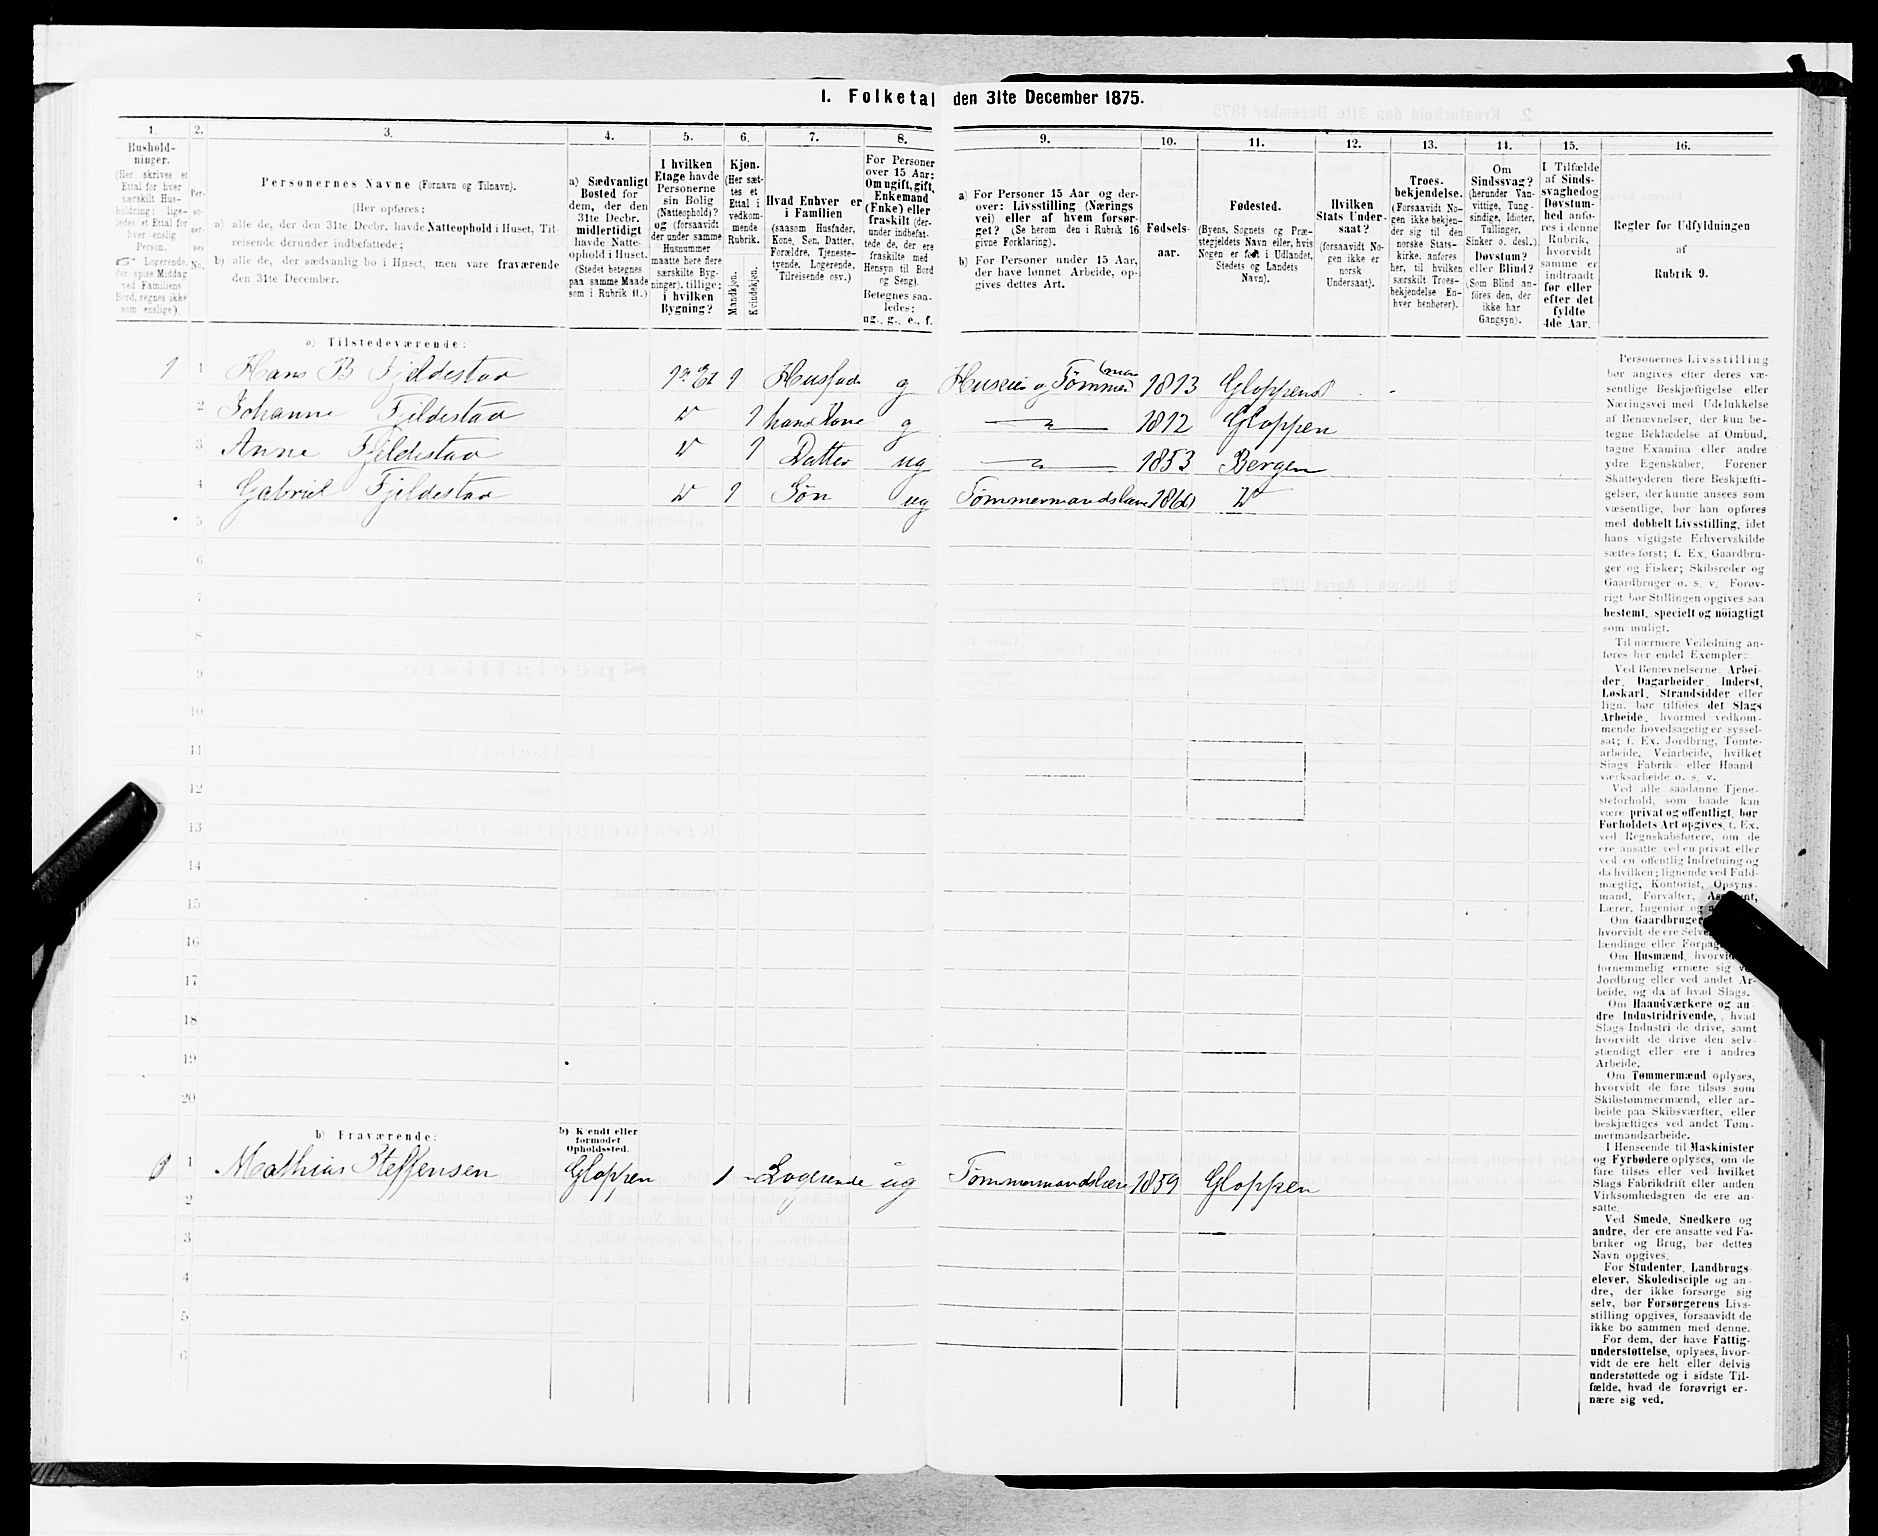 1. Folketal den 31te December 1875.
1. 2. 3. 4. 5. 6. 7. 8. 9. 10. 11. 12. 13. 14. 15. 16.
Hushold-
ninger.
(Her skrives et
Ettal for hver
særskilt Hus-
holdning; lige-
ledes et Ettal for
hver enslig
Person.
☞ Logerende,
der spise Middag
ved Familiens
Bord, regnes ikke
som enslige)
Per-
so-
ner-
nes
No.
Personernes Navne (Fornavn og Tilnavn).
(Her opføres:
a) alle de, der den 31te Decbr. havde Natteophold i Huset, Til-
reisende derunder indbefattede;
b) alle de, der sædvanlig bo i Huset, men vare fraværende
den 31te December.
a) Sædvanligt
Bosted for
dem, der den
31te Decbr.
midlertidigt
havde Natte-
ophold i Huset.
(Stedet betegnes
paa samme Maade
som i Rubrik 11.)
I hvilken
Etage havde
Personerne
sin Bolig
(Natteophold)?
og (forsaavidt
der under samme
Husnummer
maatte høre flere
særskilte Byg-
ninger), tillige:
i hvilken
Bygning?
Kjøn.
(Her sæt-
tes et
Ettal i
vedkom-
mende
Rubrik.
Mandkjøn.
Kvindekjøn.
Hvad Enhver er
i Familien
(saasom Husfader,
Kone, Søn, Datter,
Forældre, Tjeneste-
tyende, Logerende,
Tilreisende osv.)
For Personer
over 15 Aar:
Om ugift, gift,
Enkemand
(Enke) eller
fraskilt (der-
under indbefat-
tede de, der ere
fraskilte med
Hensyn til Bord
og Seng).
Betegnes saa-
ledes:
ug., g., e., f.
a) For Personer 15 Aar og der-
over: Livsstilling (Nærings
vei) eller af hvem forsør-
get? (Se herom den i Rubrik 16
givne Forklaring).
b) For Personer under 15 Aar,
der have lønnet Arbeide, op-
gives dettes Art.
Fødsels-
aar.
Fødested.
(Byens, Sognets og Præ-
stegjeldets Navn eller, hvis
Nogen er født i Udlandet,
Stedets og Landets
Navn).
Hvilken
Stats Under-
saat?
(forsaavidt No-
gen ikke er
norsk
Undersaat).
Troes-
bekjendelse.
(Forsaavidt No-
gen ikke bekjen-
der sig til den
norske Stats-
kirke, anføres
her, til hvilken
særskilt Troes-
bekjendelse En-
hver henhører).
Om
Sindssvag?
(herunder Van-
vittige, Tung-
sindige, Idioter,
Tullinger,
Sinker o. desl.)
Døvstum?
eller Blind?
(Som Blind an-
føres den, der
ikke har
Gangsyn).
I Tilfælde
af Sinds-
svaghed og
Døvstum-
hed anfø-
res i denne
Rubrik,
hvorvidt
samme er
indtraadt
før eller
efter det
fyldte
4de Aar.
Regler for Udfyldningen
af
Rubrik 9.
a) Tilstedeværende:
1 1 Hans B Fjeldestad 1ste Et 1 Husfader g Huseier og Tømmermand 1813 Gloppens
2 Johanne Fjeldestad do 1 hans Kone g 1812 Gloppen
3 Anne Fjeldestad do 1 Datter ug 1853 Bergen
4 Gabriel Fjeldestad do 1 Søn ug Tømmermandslære do
5
6
7
8
9
10
11
12
13
14
15
16
17
18
19
20
b) Fraværende:
b) Kjendt eller
formodet
Opholdssted.
1 Mathias Steffensen Gloppen 1 Logerende ug Tømmermandslære 1859 Gloppen
2
3
4
5
6
Personernes Livsstilling
bør angives efter deres væ-
sentlige Beskjæftigelse eller
Næringsvei med Udelukkelse
af Benævnelser, der kun be-
tegne Beklædelse af Ombud,
tagne Examina eller andre
ydre Egenskaber. Forener
Skatteyderen flere Beskjæfti-
gelser, der kunne ansees som
væsentlige, bør han opføres
med dobbelt Livsstilling, idet
hans vigtigste Erhvervskilde
sættes først; f. Ex. Gaardbru-
ger og Fisker; Skibsreder og
Gaardbruger o. s. v. Forøv-
rigt bør Stillingen opgives saa
bestemt, specielt og nøiagtigt
som muligt.
Til nærmere Veiledning an-
føres her endel Exempler:
Ved Benævnelserne: Arbei-
der, Dagarbeider, Inderst,
Løskarl, Strandsidder eller
lign. bør tilføies det Slags
Arbeide, hvormed vedkom-
mende hovedsagelig er syssel-
sat; f. Ex. Jordbrug, Tomte-
arbeide, Veiarbeide, hvilket
Slags Fabrik- eller Haand-
værksarbeide o. s. v.
Ved alle saadanne Tjene-
steforhold, som baade kan
være privat og offentligt, bør
Forholdets Art opgives, f. Ex.
ved Regnskabsførere, om de
ere ansatte ved en privat eller
ved en offentlig Indretning og
da hvilken; lignende ved Fuld-
mægtig, Kontorist, Opsyns-
mand, Forvalter,
Lærer, Ingeniør og
Om Gaardbruger
hvorvidt de ere Selv
lændinge eller
Om Husmænd, hvorvidt
fornemmelig ernære sig ved
Jordbrug eller ved andet Ar-
beide, og da af hvad Slags.
Om Haandværkere og an-
dre Industridrivende, hvad
Slags Industri de drive, samt
hvorvidt de drive den selv-
stændigt eller ere i andres
Arbeide.
Om Tømmermænd oplyses,
hvorvidt de fare tilsøs som
Skibstømmermænd, eller ar-
beide paa Skibsværfter, eller
beskjæftiges ved andet Tøm-
mermandsarbeide.
I Henseende til Maskinister
og Fyrbødere oplyses, om de
fare tilsøs eller ved hvilket
Slags Fabrikdrift eller anden
Virksomhedsgren de ere an-
satte.
Ved Smede, Snedkere og
andre, der ere ansatte ved Fa-
briker og Brug, bør dettes
Navn opgives.
For Studenter, Landbrugs-
elever, Skoledisciple og an-
dre, der ikke forsørge sig
selv, bør Forsørgerens Livs-
stilling opgives, forsaavidt de
ikke bo sammen med denne.
For dem, der have Fattig-
understøttelse, oplyses, hvor-
vidt de ere helt eller delvis
understøttede og i sidste Til-
fælde, hvad de forøvrigt er-
nære sig ved.